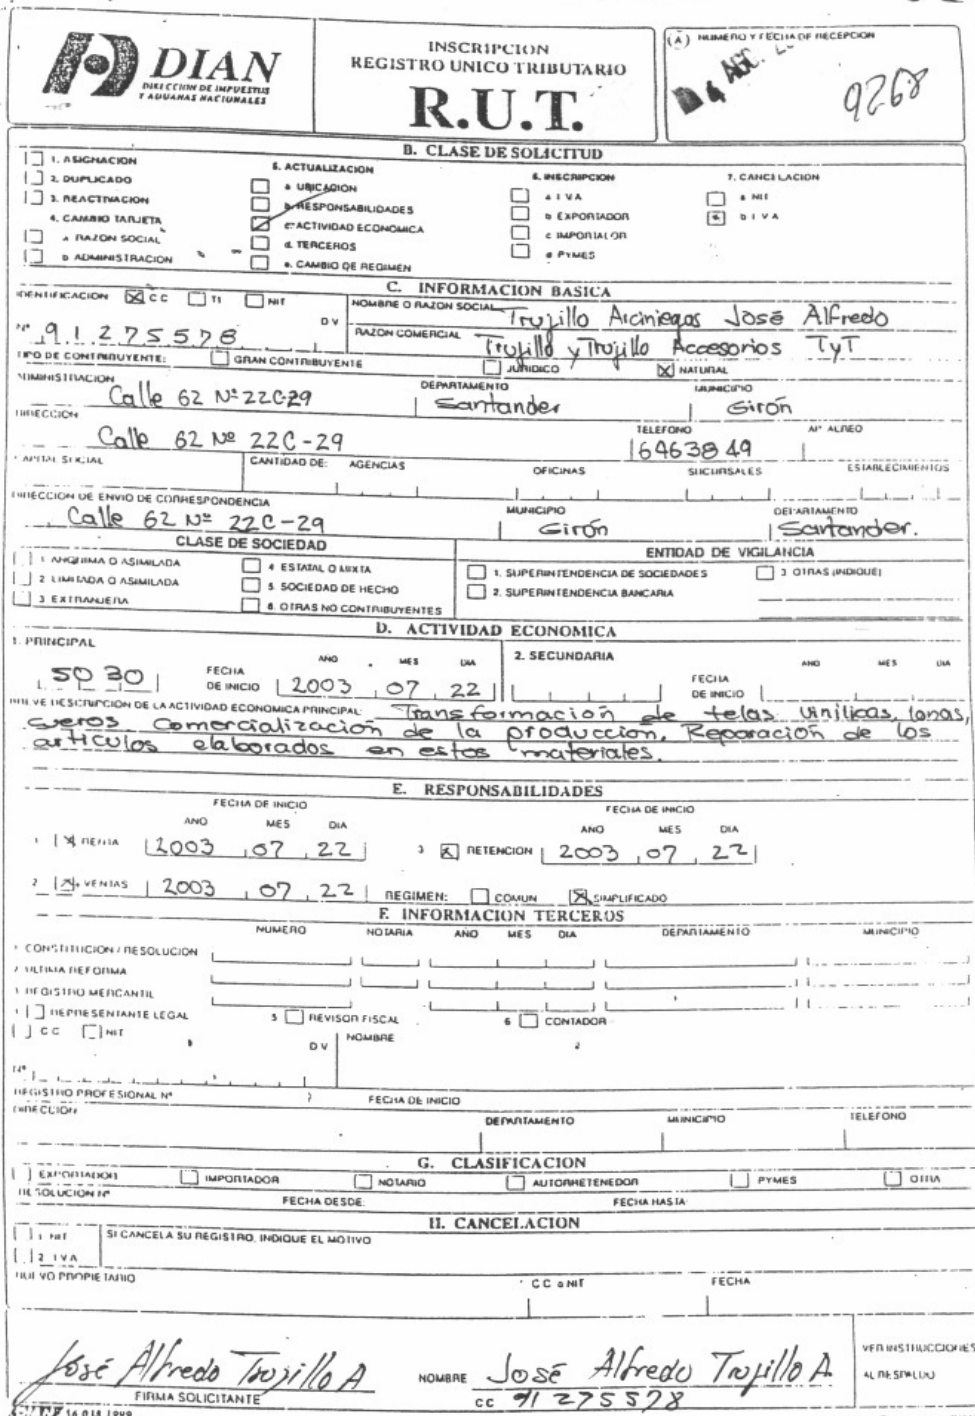 DIAN
DIRECCION DE IMPUESTOS
Y ADUANAS NACIONALES
INSCRIPCION
REGISTRO UNICO TRIBUTARIO
R.U.T.
(A) NUMERO Y FECHA DE RECEPCION
AGO.
9268
B. CLASE DE SOLICITUD
1. ASIGNACION
2. DUPLICADO
3. REACTIVACION
4. CAMBIO TARJETA
a RAZON SOCIAL
b ADMINISTRACION
5. ACTUALIZACION
a UBICACION
b RESPONSABILIDADES
c ACTIVIDAD ECONOMICA
d. TERCEROS
e. CAMBIO DE REGIMEN
6. INSCRIPCION
a I V A
b EXPORTADOR
c IMPORTADOR
d PYMES
7. CANCELACION
a NIT
b I V A
C. INFORMACION BASICA
IDENTIFICACION C C TI NIT
NOMBRE O RAZON SOCIAL Trujillo Arciniegas José Alfredo
Nº 91275578 D V
RAZON COMERCIAL Trujillo y Trujillo Accesorios TyT
TIPO DE CONTRIBUYENTE: GRAN CONTRIBUYENTE JURIDICO NATURAL
ADMINISTRACION DEPARTAMENTO MUNICIPIO
Calle 62 Nº 22C-29 Santander Girón
DIRECCION TELEFONO Aº AEREO
Calle 62 Nº 22C-29 6463849
CAPITAL SOCIAL CANTIDAD DE: AGENCIAS OFICINAS SUCURSALES ESTABLECIMIENTOS
DIRECCION DE ENVIO DE CORRESPONDENCIA MUNICIPIO DEPARTAMENTO
Calle 62 Nº 22C-29 Girón Santander.
CLASE DE SOCIEDAD
1 ANONIMA O ASIMILADA
2 LIMITADA O ASIMILADA
3 EXTRANJERA
4 ESTATAL O MIXTA
5 SOCIEDAD DE HECHO
6. OTRAS NO CONTRIBUYENTES
ENTIDAD DE VIGILANCIA
1. SUPERINTENDENCIA DE SOCIEDADES
2. SUPERINTENDENCIA BANCARIA
3 OTRAS (INDIQUE)
D. ACTIVIDAD ECONOMICA
1. PRINCIPAL
5030 FECHA DE INICIO AÑO MES DIA
2003 07 22
2. SECUNDARIA
FECHA DE INICIO AÑO MES DIA
BREVE DESCRIPCION DE LA ACTIVIDAD ECONOMICA PRINCIPAL: Transformación de telas vinilicas, lonas,
cueros Comercialización de la produccion. Reparación de los
artículos elaborados en estos materiales.
E. RESPONSABILIDADES
FECHA DE INICIO FECHA DE INICIO
AÑO MES DIA AÑO MES DIA
1 RENTA 2003 07 22 3 RETENCION 2003 07 22
2 VENTAS 2003 07 22 REGIMEN: COMUN SIMPLIFICADO
F. INFORMACION TERCEROS
NUMERO NOTARIA AÑO MES DIA DEPARTAMENTO MUNICIPIO
1 CONSTITUCION / RESOLUCION
2 ULTIMA REFORMA
3 REGISTRO MERCANTIL
4 REPRESENTANTE LEGAL 5 REVISOR FISCAL 6 CONTADOR
C C NIT D V NOMBRE
Nº
REGISTRO PROFESIONAL Nº FECHA DE INICIO
DIRECCION DEPARTAMENTO MUNICIPIO TELEFONO
G. CLASIFICACION
EXPORTADOR IMPORTADOR NOTARIO AUTORRETENEDOR PYMES OTRA
RESOLUCION Nº FECHA DESDE: FECHA HASTA
H. CANCELACION
1 NIT SI CANCELA SU REGISTRO, INDIQUE EL MOTIVO
2 I V A
NUEVO PROPIETARIO C C o NIT FECHA
José Alfredo Trujillo A
FIRMA SOLICITANTE
NOMBRE José Alfredo Trujillo A.
CC 91 275578
VER INSTRUCCIONES
AL RESPALDO